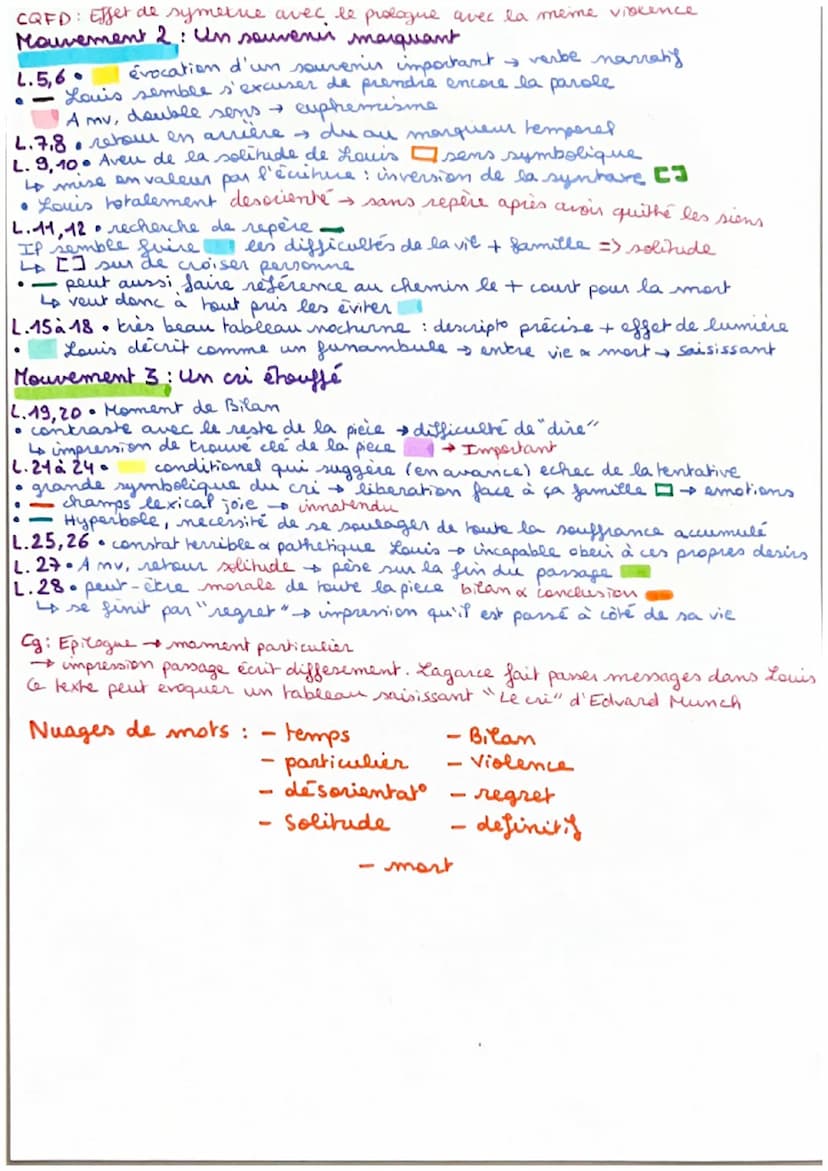 CQFD : Effet de symetrie avec le prologue avec la même violence
Mouvement 2 : Un souvenir marquant
L.5,6 • évocation d'un souvenir important → verbe narratif
• — Louis semble s'excuser de prendre encore la parole
A mv, double sens → euphemisme
L.7,8 • retour en arrière → du au marqueur temporel
L. 9,10 • Aveu de la solitude de Louis sens symbolique
↳ mise en valeur par l'écriture : inversion de la syntaxe []
• Louis totalement desorienté → sans repère après avoir quitté les siens
L.11,12 • recherche de repère —
Il semble fuire les difficultés de la vie + famille => solitude
↳ [] sur de croiser personne
• — peut aussi faire référence au chemin le + court pour la mort
↳ veut donc à tout pris les éviter
L.15 à 18 • très beau tableau nocturne : descripto précise + effet de lumière
• Louis décrit comme un funambule → entre vie & mort → saisissant
Mouvement 3 : Un cri étouffé
L.19,20 • Moment de Bilan
• contraste avec le reste de la pièce → difficulté de "dire"
↳ impression de trouvé clé de la pièce → Important
L.21 à 24 • conditionel qui suggère (en avance) echec de la tentative
• grande symbolique du cri → liberation face à ça famille → emotions
• — champs lexical joie → innatendu
• — Hyperbole, necessité de se soulager de toute la souffrance accumulé
L.25,26 • constat terrible & pathetique Louis → incapable obeir à ces propres desirs
L. 27 • A mv, retour solitude → pèse sur la fin du passage
L.28 • peut-être morale de toute la piece bilan & conclusion
↳ se finit par "regret" → impression qu'il est passé à côté de sa vie
Cg : Epilogue → moment particulier
→ impression passage écrit differement. Lagarce fait passer messages dans Louis
Ce texte peut evoquer un tableau saisissant "Le cri" d'Edvard Munch
Nuages de mots : - temps - Bilan
- particulier - Violence
- désorientat° - regret
- Solitude - definitif
- mort